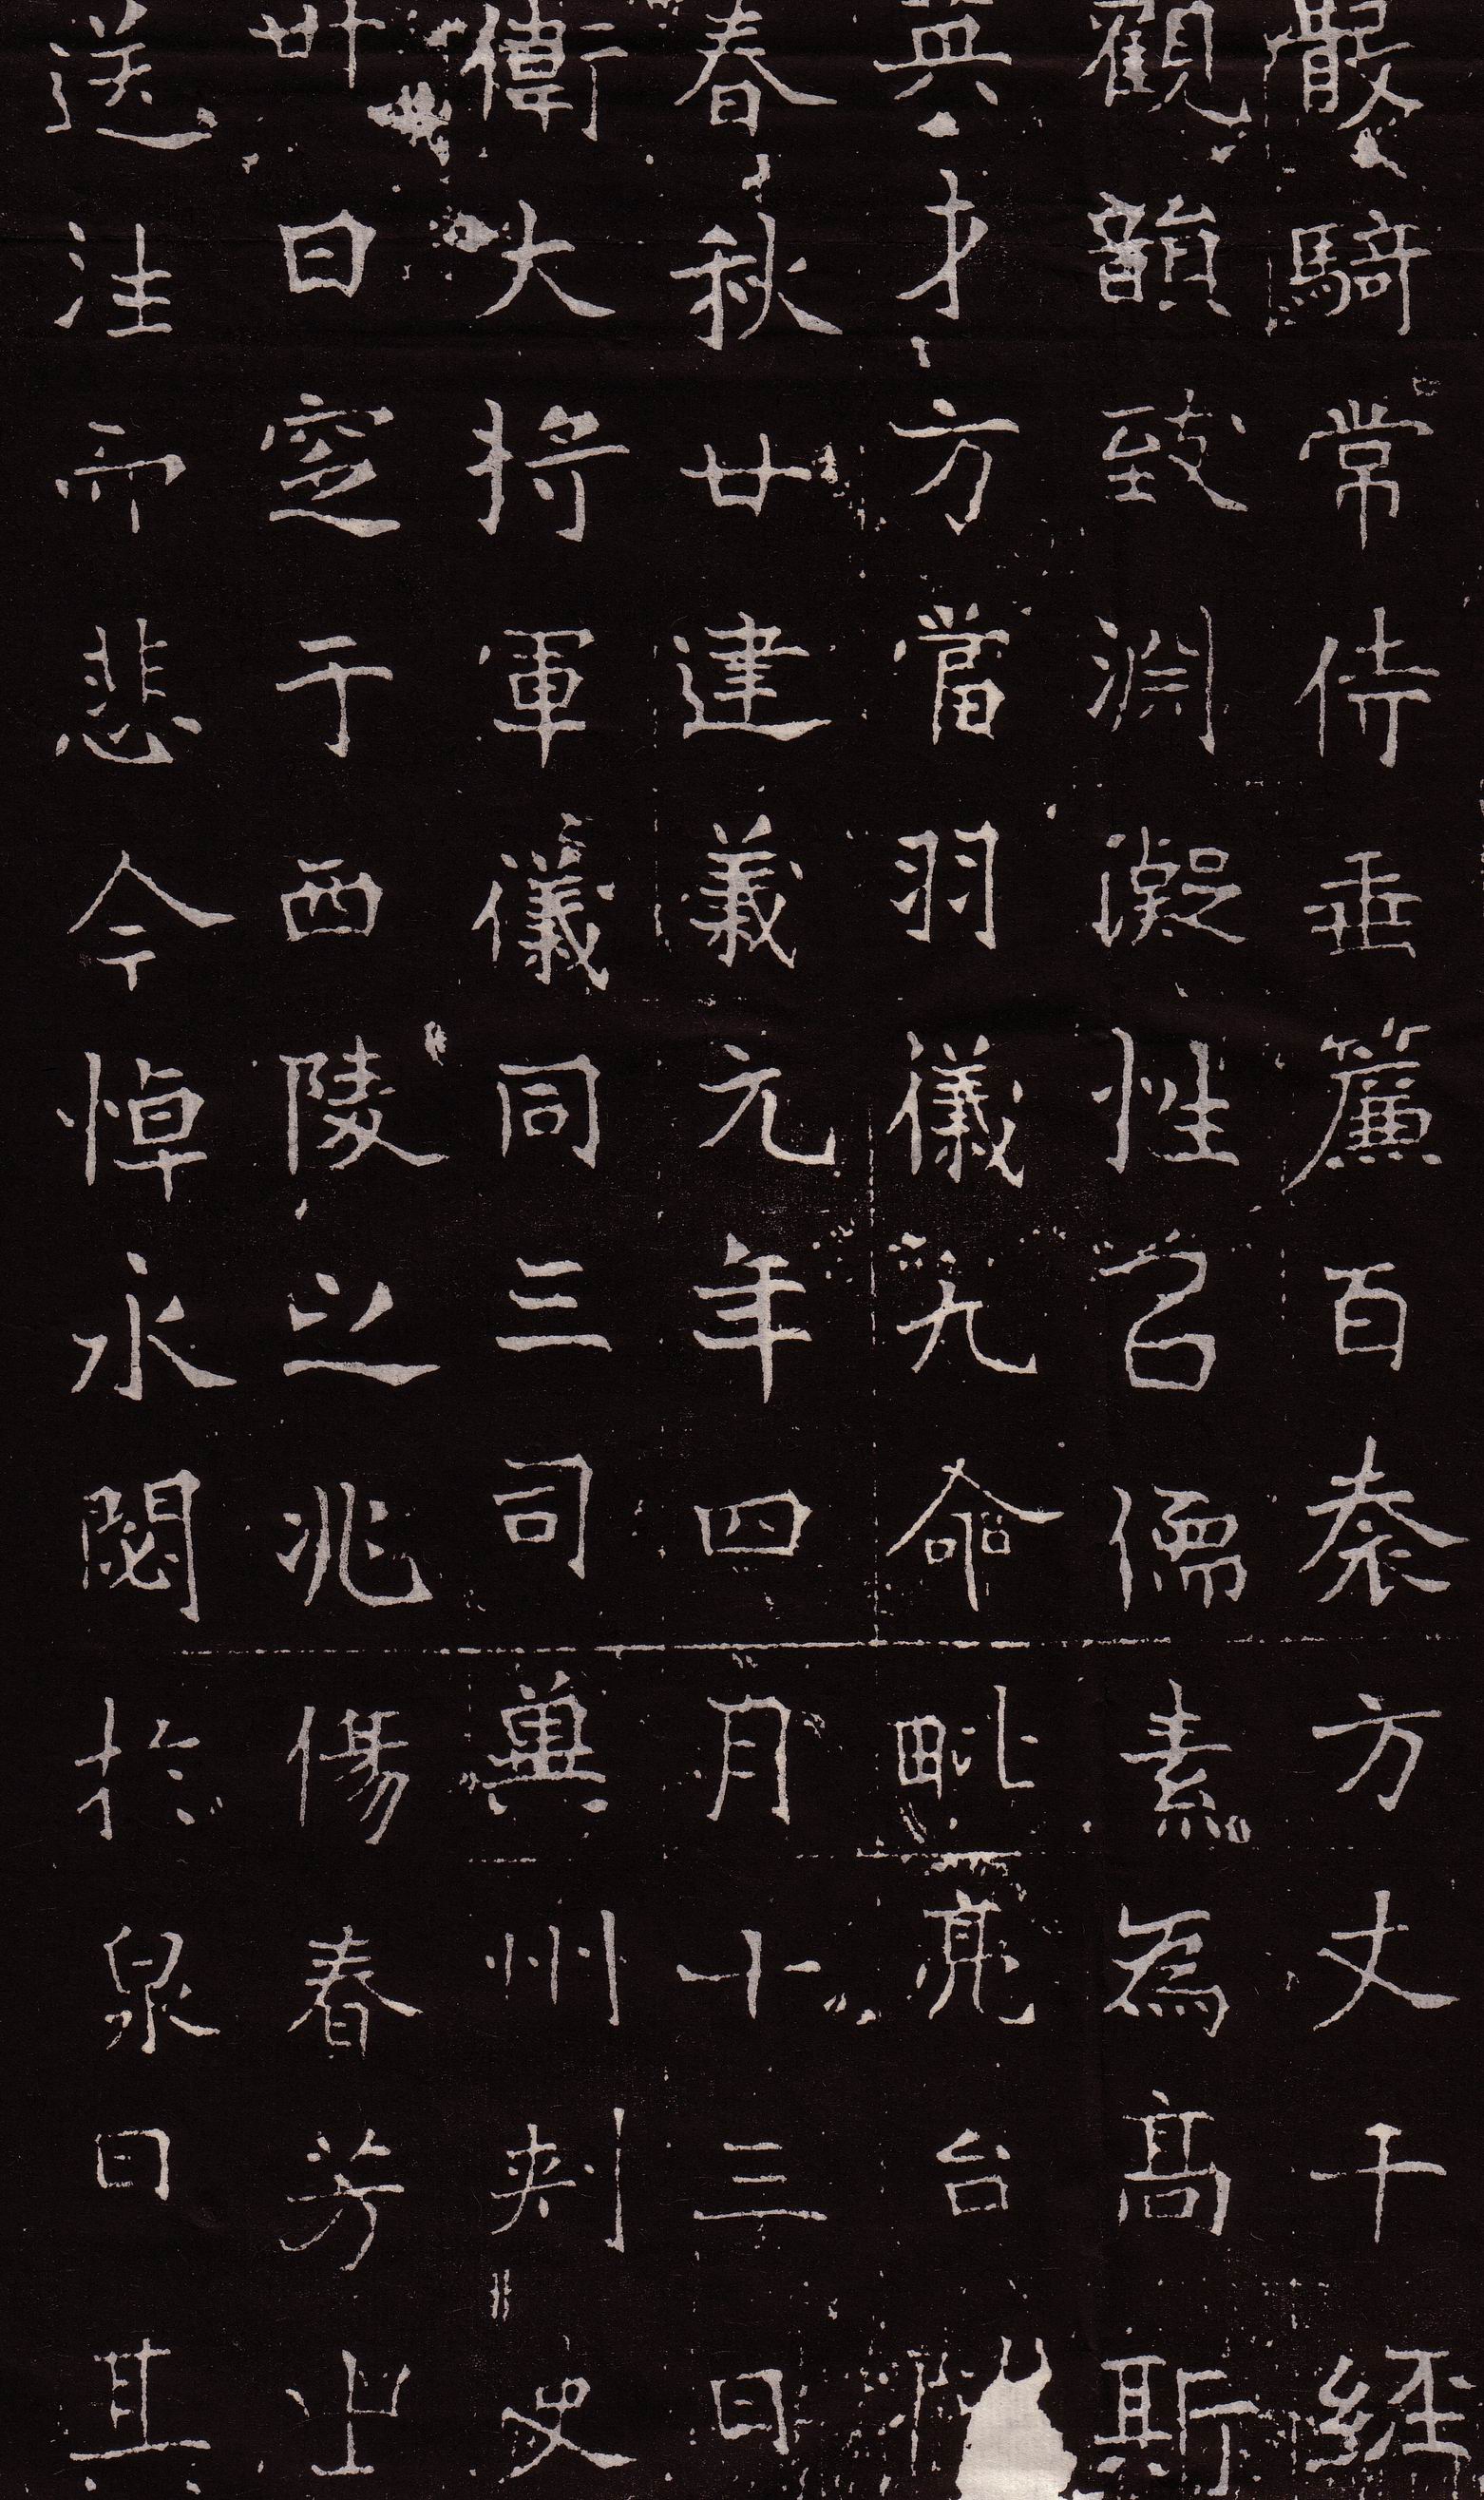 散騎常侍垂簾百袠方丈千經
觀韻致淵凝性超儒素爲高斯
英才方當羽儀九命毗亮台
春秋廿建義元年四月十三日
衛大將軍儀同三司兾州刾史
卅日窆于西陵之兆傷春芳之
送往而悲今悼永閟於泉曰其